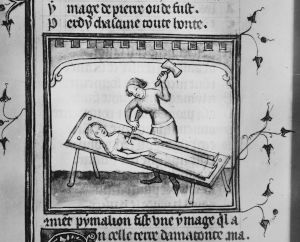 ymage de pierre ou de fust.
perdy chascune toute bonte.
pymalion fist vne ymage qͥ a
en celle terre damatonte. ma.